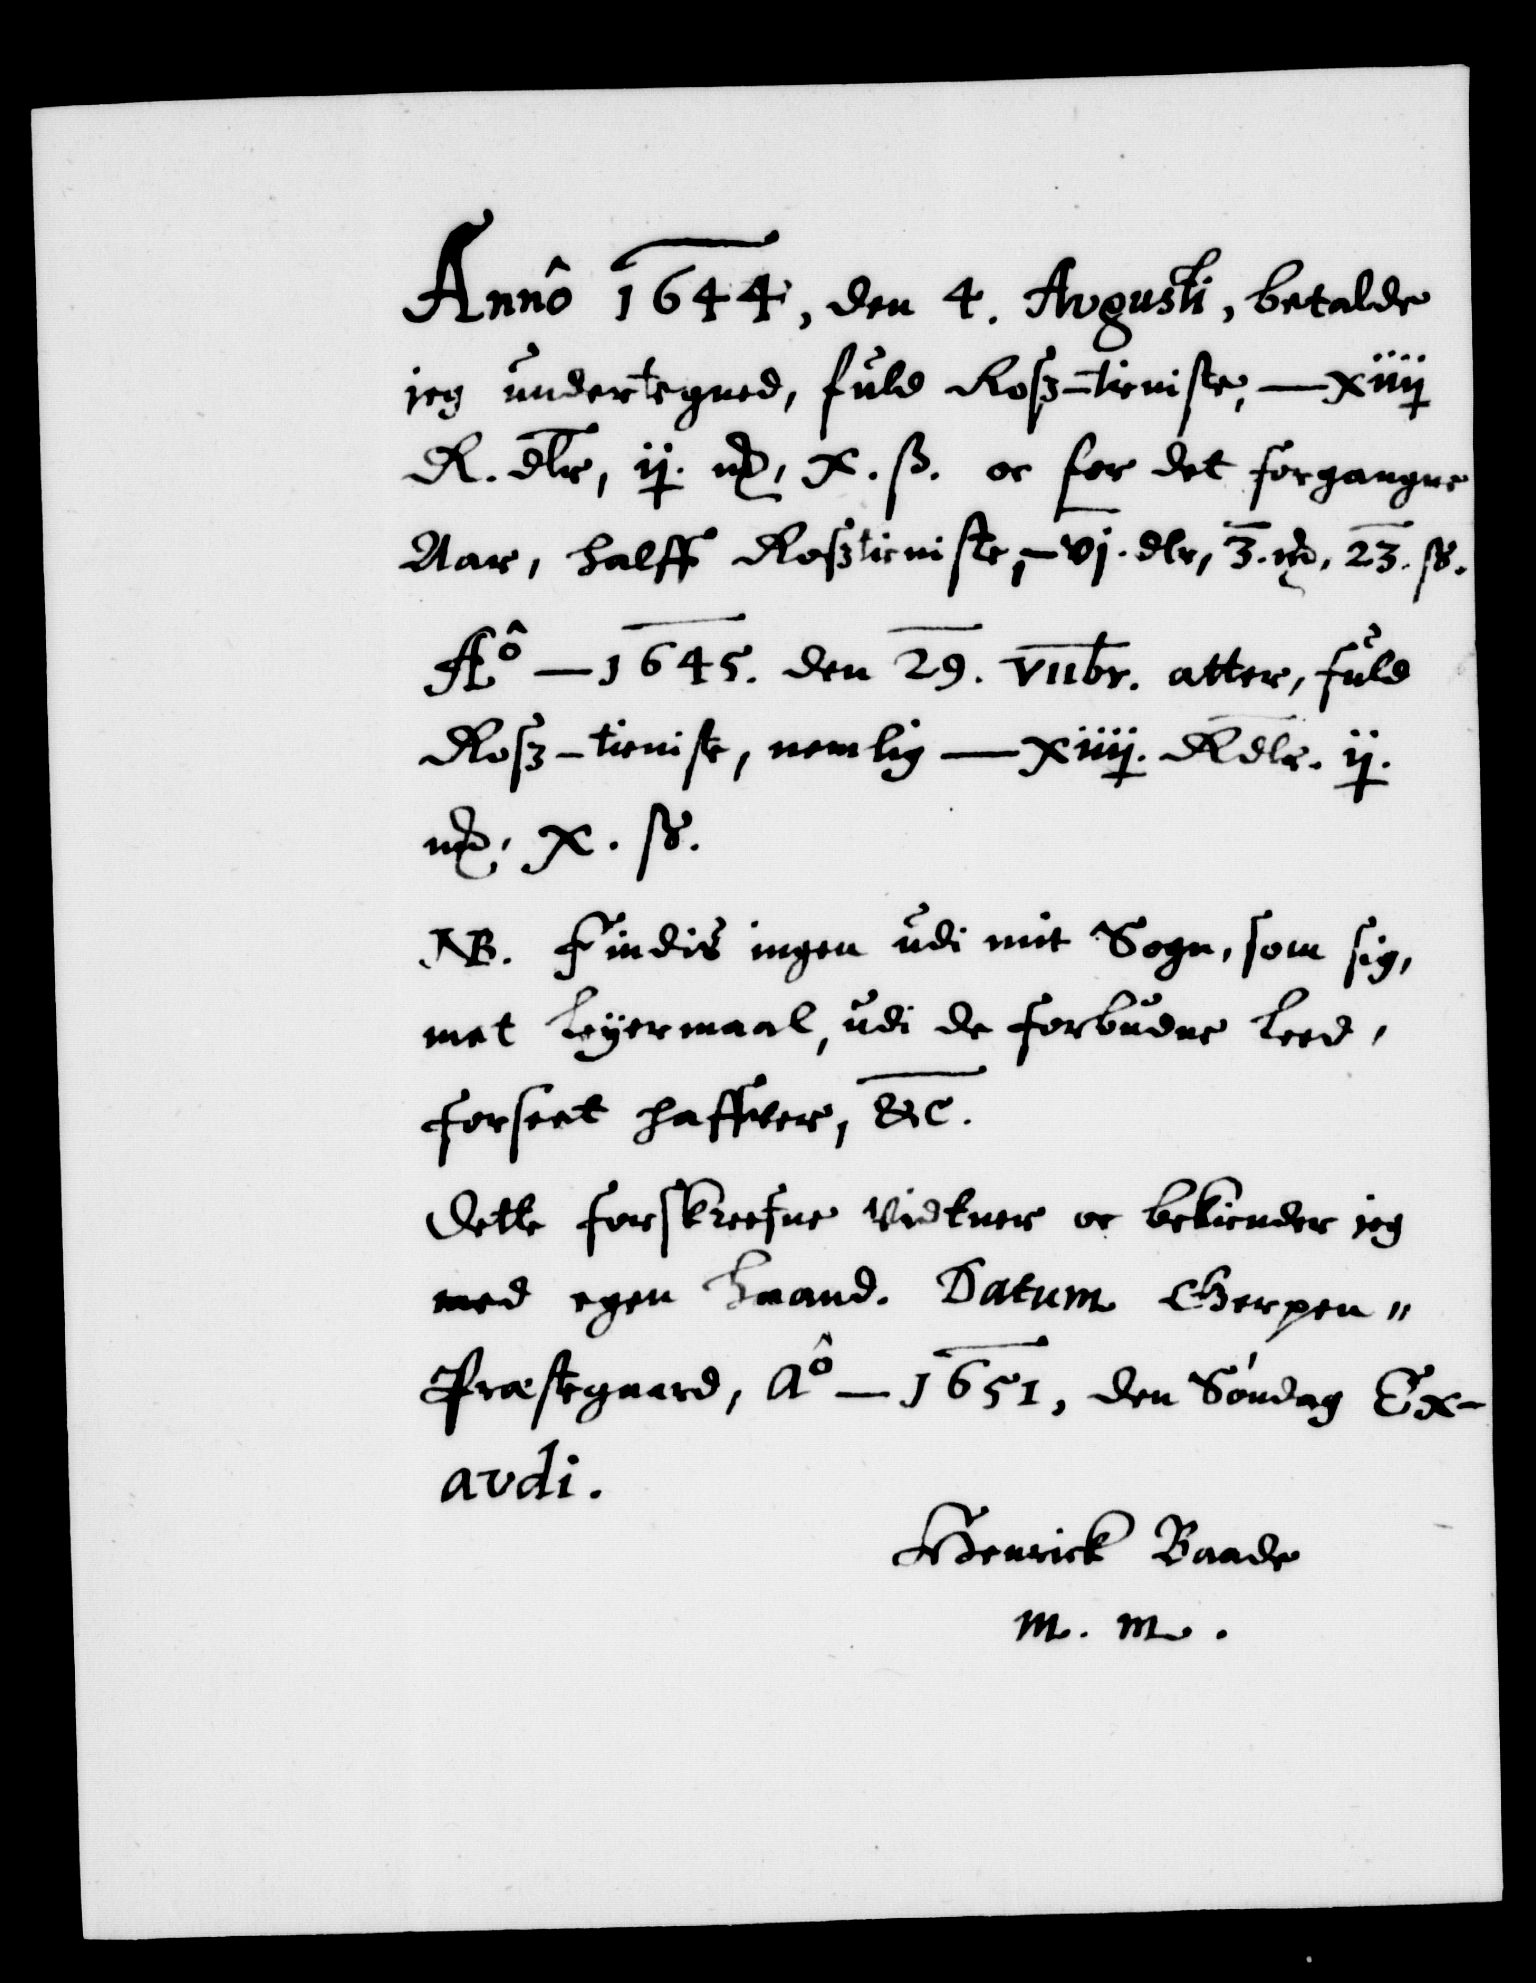 Annô 1644, den 4. Avgusti, betalde
jeg undertegned, fuld Rosz-tieniste, — xiiij
R. dlr, ij. mƶ, x. ß. oc for det forgangne
Aar, halff Rosztieniste, — vj. dlr, 3. mƶ, 23. ß.
Aô — 1645. den 29. VIIbr. atter, fuld
Rosz-tieniste, nemlig — xiiij. Rdlr. ij.
mƶ, x. ß.
NB. Findis ingen udi mit Sogn, som sig,
met Leÿermaal, udi de forbudne Leed,
forseet haffver, &c.
Dette forskreefne Vidtner oc bekiender jeg
med egen Haand. Datum Gerpen"
Præstegaard, Aô — 1651, den Söndag Ex-
avdi.
Henrick Baade
m. m.